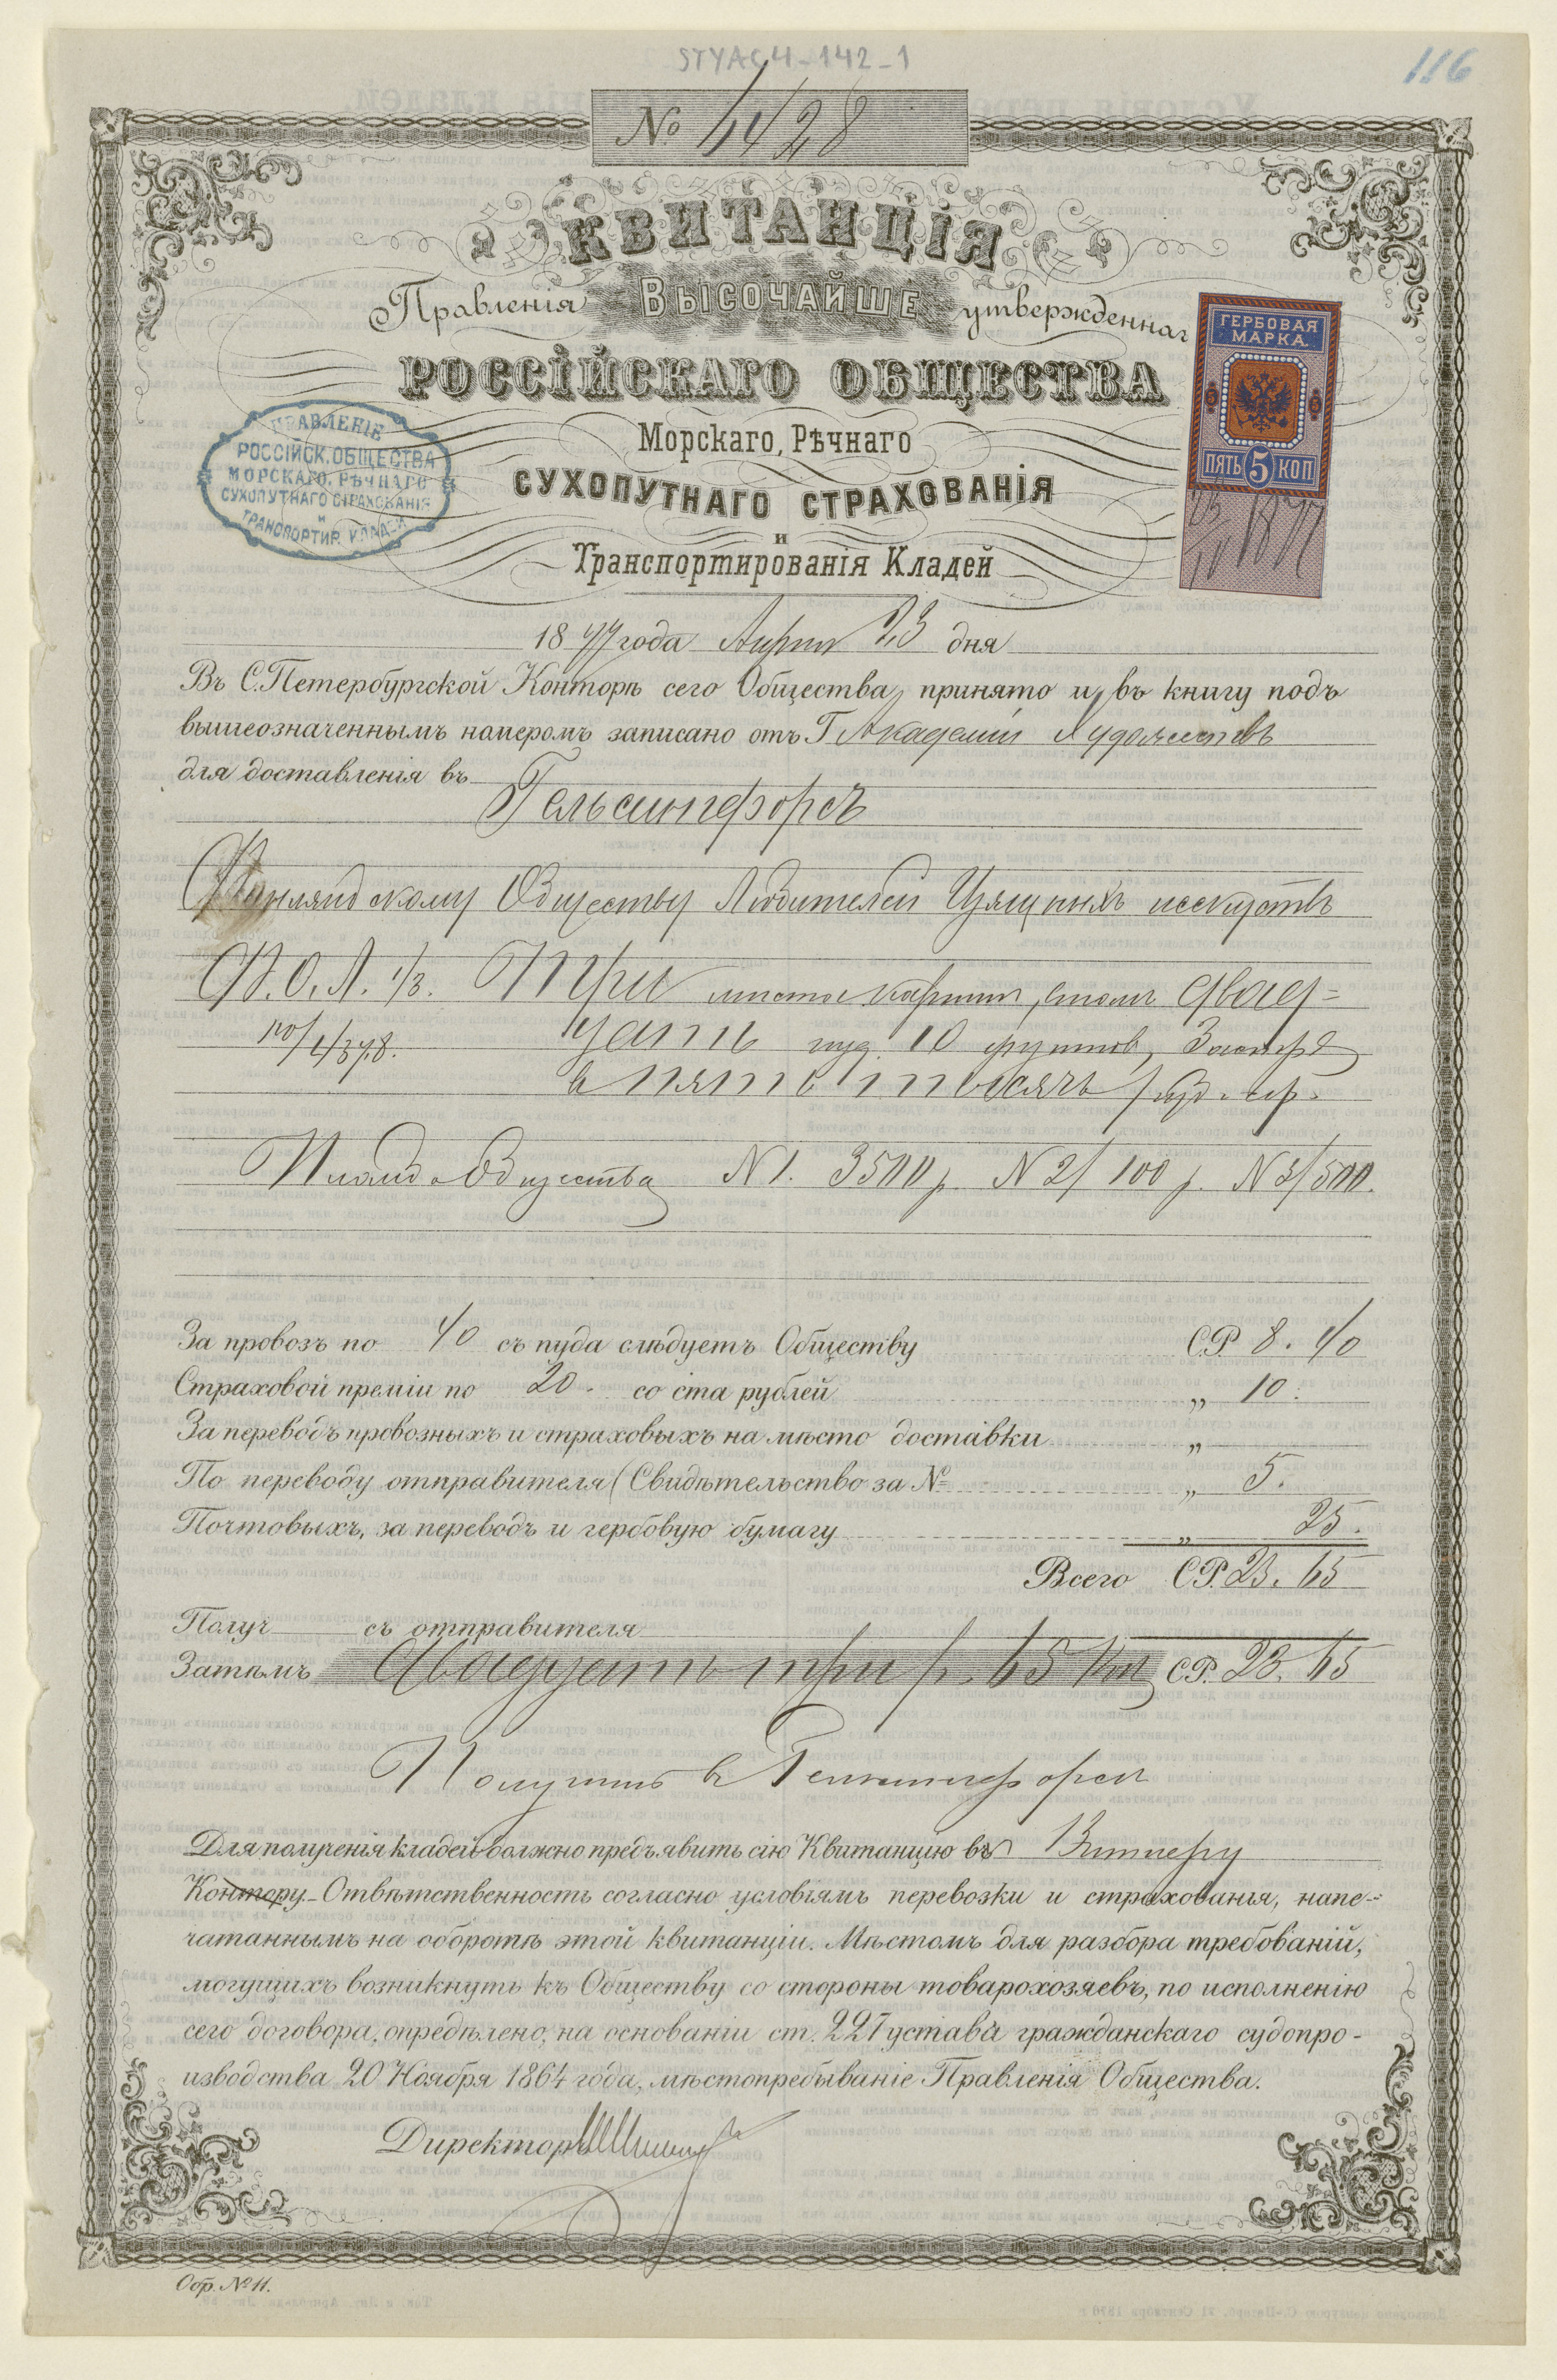 STYAC4-142-1
116
№ 4428
КВИТАНЦІЯ
Правленія ВЫСОЧАЙШЕ утвержденнаг
РОССІЙСКАГО ОБЩЕСТВА
Морскаго, Рѣчнаго
СУХОПУТНАГО СТРАХОВАНІЯ
и
Транспортированія Кладей
ГЕРБОВАЯ
МАРКА
ПЯТЬ 5 КОП
ПРАВЛЕНІЕ
РОССІЙСК. ОБЩЕСТВА
МОРСКАГО, РѢЧНАГО
СУХОПУТНАГО СТРАХОВАНІЯ
и
ТРАНСПОРТИР. КЛАДЕЙ
1877 года Апрѣля 23 дня
Въ С.Петербургской Конторѣ сего Общества, принято и, въ книгу подъ
вышеозначеннымъ номеромъ записано отъ Г Академіи Художествъ
для доставленія въ
Гельсингфорсъ
Финляндскому Обществу Любителей Изящныхъ искуствъ
Ф.О.Л. 1/3. Три мѣста картинъ, двад=
цать пуд. 10 фунтовъ,
в пять тысячъ руб. сер.
Общества N 1. 3500 р. N 2/ 100 р. N 3/ 500.
За провозъ по 40 съ пуда слѣдуетъ Обществу С.Р. 8. 40
Страховой преміи по 20. со ста рублей „ 10.
За переводъ провозныхъ и страховыхъ на мѣсто доставки „
По переводу отправителя (Свидѣтельство за № „ 5.
Почтовыхъ, за переводъ и гербовую бумагу „ 25.
Всего С.Р. 23. 65
Получ съ отправителя
Затѣмъ Двадцать три р. 65 коп С.Р. 23. 65
Получить в Гельсингфорсѣ
Для полученія кладей должно предъявить сію Квитанцію въ
Контору Отвѣтственность согласно условіямъ перевозки и страхованья, напе-
чатаннымъ на оборотѣ этой квитанціи. Мѣстомъ для разбора требованій,
могущихъ возникнуть къ Обществу со стороны товарохозяевъ, по исполненію
сего договора, опредѣлено, на основаніи ст. 227 устава гражданскаго судопро-
изводства 20 Ноября 1864 года, мѣстопребываніе Правленія Общества.
Директоръ
Обр. № 11.